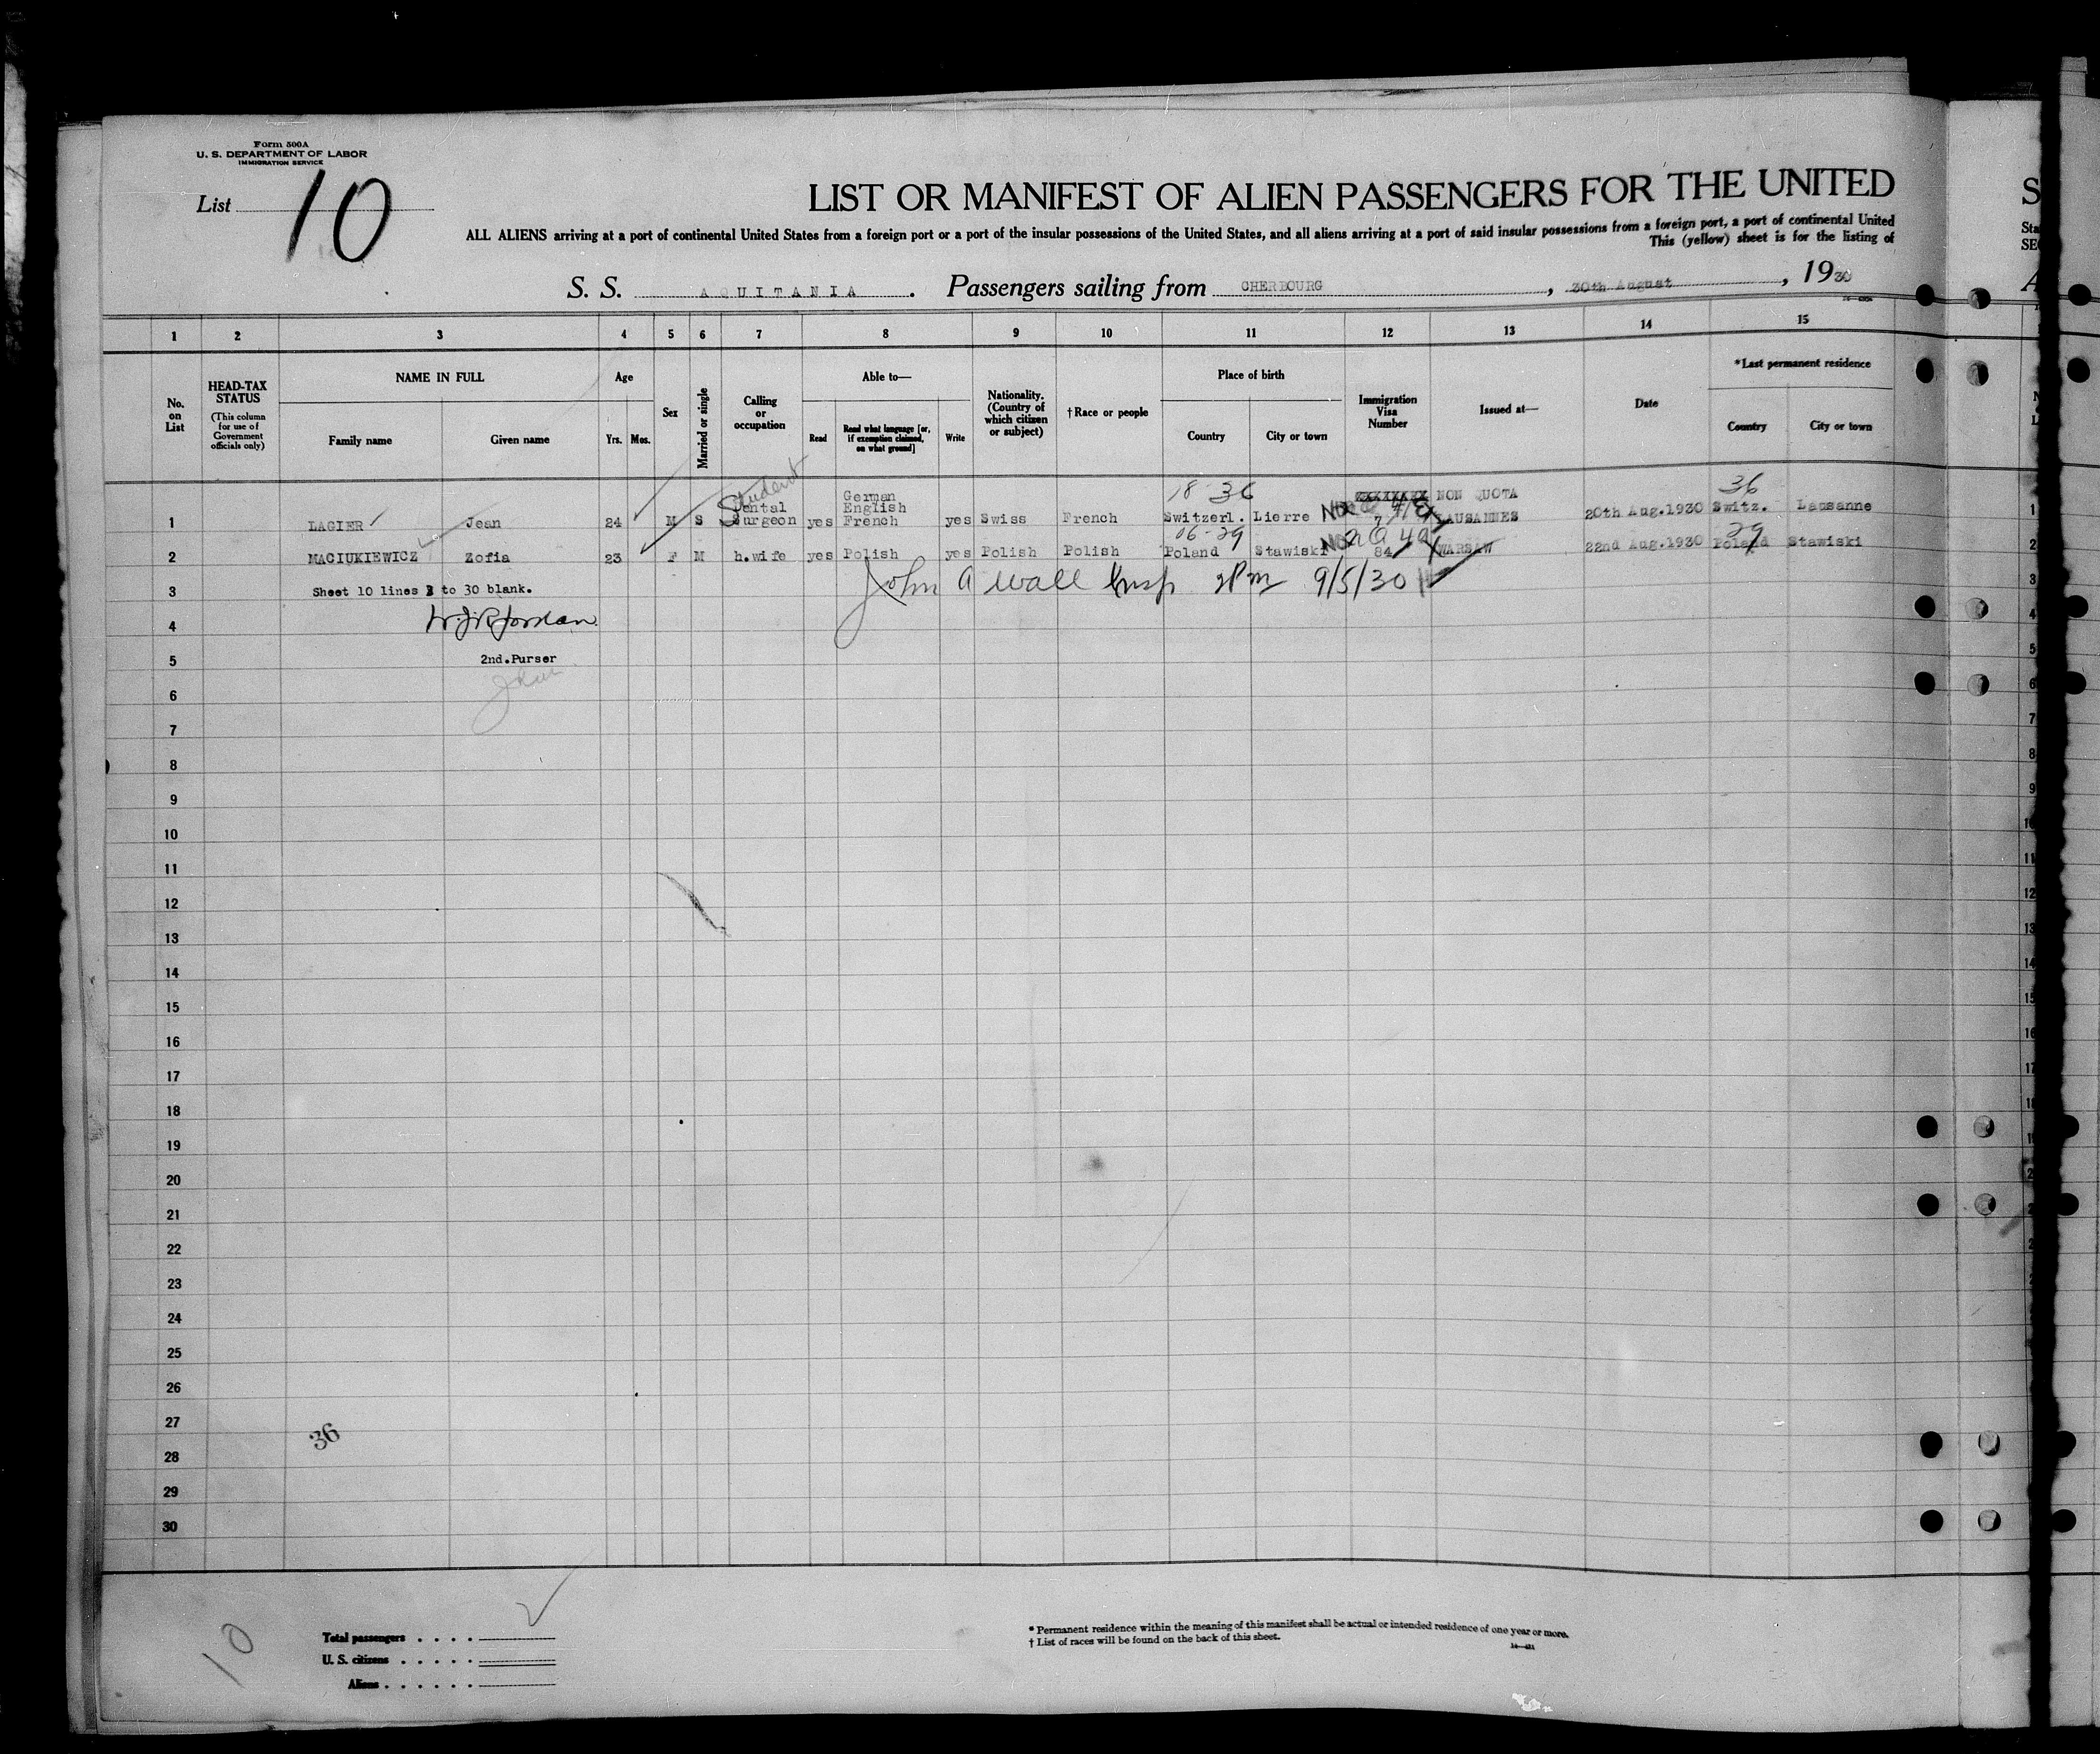 Form 500A
U. S. DEPARTMENT OF LABOR
IMMIGRATION SERVICE
List 10
LIST OR MANIFEST OF ALIEN PASSENGERS FOR THE UNITED
ALL ALIENS arriving at a port of continental United States from a foreign port or a port of the insular possessions of the United States, and all aliens arriving at a port of said insular possessions from a foreign port, a port of continental United
This (yellow) sheet is for the listing of
S. S. AQUITANIA. Passengers sailing from CHERBOURG, 30th August, 1930
1 2 3 4 5 6 7 8 9 10 11 12 13 14 15
No. on List
HEAD-TAX STATUS
(This column for use of Government officials only)
NAME IN FULL
Family name Given name
Age
Yrs. Mos.
Sex
Married or single
Calling or occupation
Able to—
Read Read what language [or, if exemption claimed, on what ground] Write
Nationality. (Country of which citizen or subject)
†Race or people
Place of birth
Country City or town
Immigration Visa Number
Issued at—
Date
*Last permanent residence
Country City or town
Student German 18-36 NON QUOTA 36
Dental English
1 LAGIER Jean 24 M S Surgeon yes French yes Swiss French Switzerl. Lierre 7 LAUSANNES 20th Aug.1930 Switz. Lausanne 1
06-29 29
2 MACIUKIEWICZ Zofia 23 F M h.wife yes Polish yes Polish Polish Poland Stawiski 84 WARSAW 22nd Aug.1930 Poland Stawiski 2
3 Sheet 10 lines 3 to 30 blank. John A Wall Insp 2Pm 9/5/30 3
4 W.J.R.Jordan. 4
5 2nd.Purser 5
John
6 6
7 7
8 8
9 9
10
11 11
12 12
13 13
14 14
15 15
16 16
17
18
19
20
21
22
23
24
25
26
27
36
28
29
30
10
Total passengers
U. S. citizens
Aliens
* Permanent residence within the meaning of this manifest shall be actual or intended residence of one year or more.
† List of races will be found on the back of this sheet.